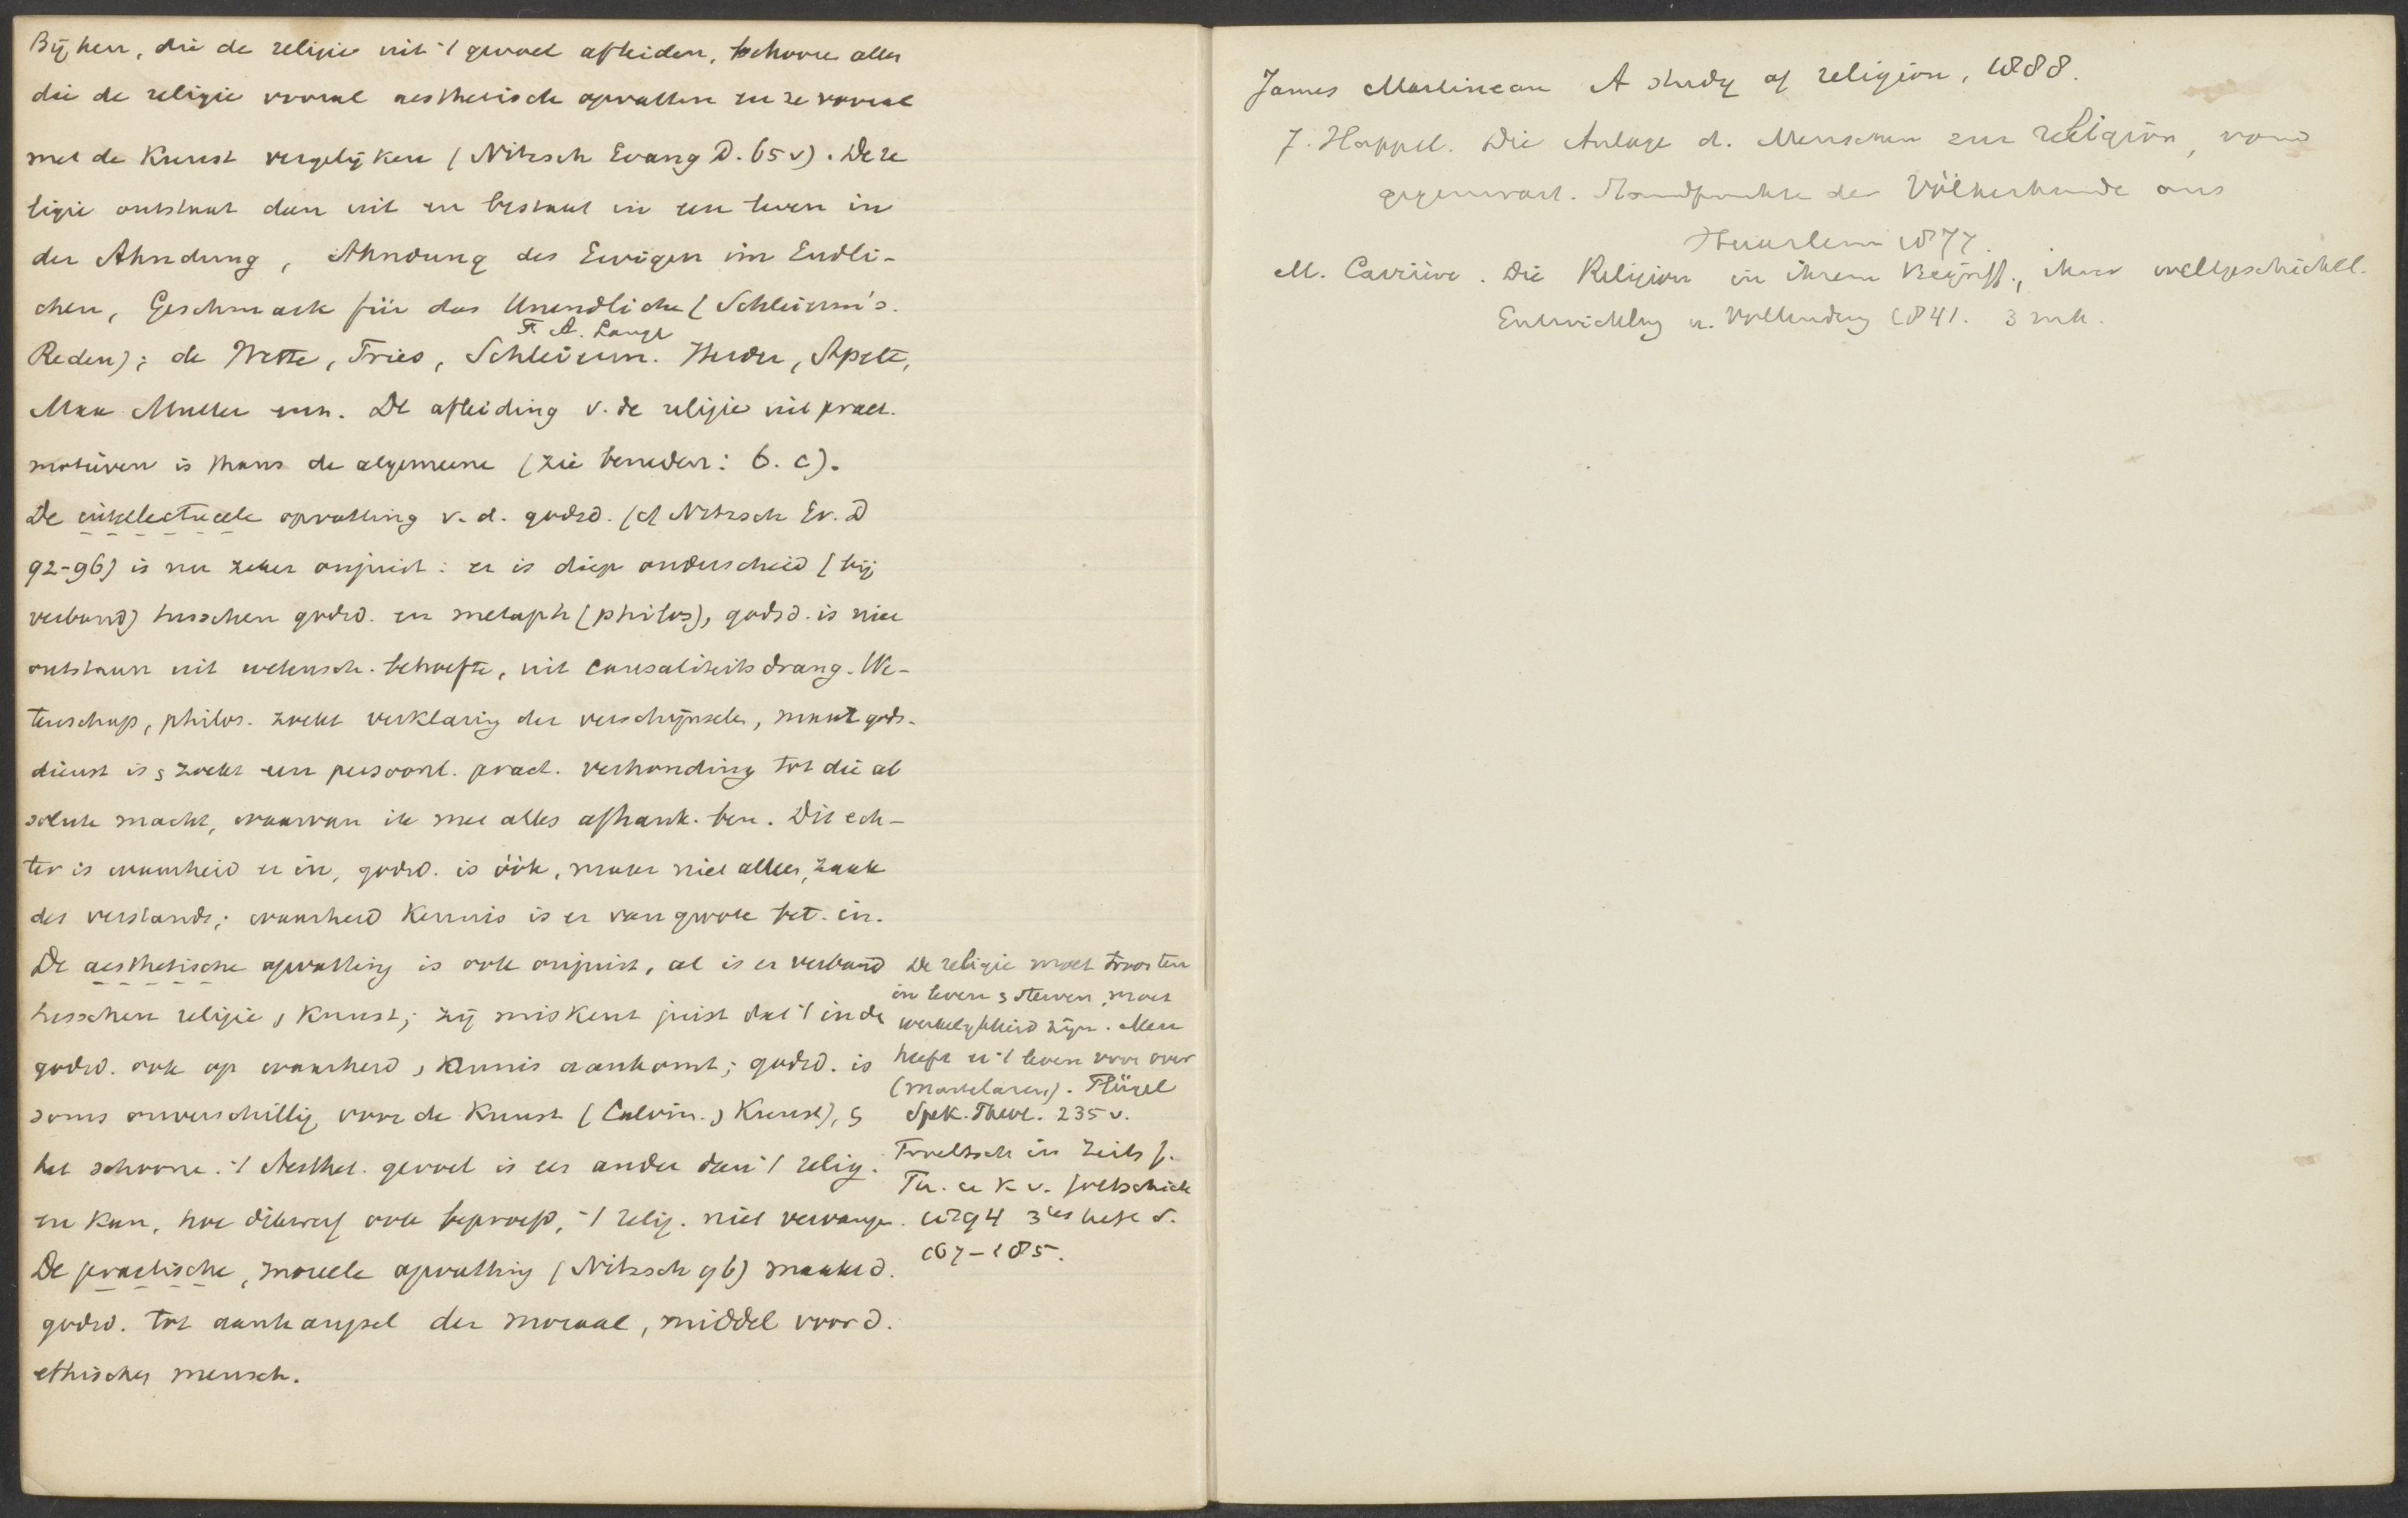 Bij hen, die de religie uit 't gevoel afleiden, behooren allen
die de religie vooral aesthetisch opvatten en ze vooral
met de Kunst vergelijken (Nitzsch Evang D. 65 v). De re
ligie ontstaat dan uit en bestaat in een leven in
der Ahndung, Ahndung des Ewigen im Endli-
chen, Geschmack für das Unendliche (Schleierm's.
F. A. Lange
Reden); de Wette, Fries, Schleierm. Herder, Apelt,
Max Muller enz. De afleiding v. de religie uit pract.
motieven is thans de algemeene (zie beneden: b. c).
De intellectueele opvatting v. d. godsd. (cf Nitzsch Ev. D
92-96) is nu zeker onjuist: er is diep onderscheid (bij
verband) tusschen godsd. en metaph (philos), godsd. is niet
ontstaan uit wetensch. behoefte, uit causaliteitsdrang. We-
tenschap, philos. zoekt verklaring der verschijnselen, maar gods-
dienst is, zoekt een persoonl. pract. verhouding tot die ab
solute macht, waarvan ik met alles afhank. ben. Dit ech-
ter is waarheid er in, godsd. is óók, maar niet alleen, zaak
des verstands; waarheid Kennis is er van groote bet. in.
De aesthetische opvatting is ook onjuist, al is er verband
tusschen religie, Kunst; zij miskent juist dat 't in de
godsd. ook op waarheid, Kennis aankomt; godsd. is
soms onverschillig voor de Kunst (Calvin. , Kunst), 
het schoone. 't Aesthet. gevoel is een ander dan 't relig.
en kan, hoe dikwerf ook beproefd, 't relig. niet vervangen.
De practische, moreele opvatting (Nitzsch 96) maakt d.
godsd. tot aanhangsel der moraal, middel voor d.
ethischen mensch.
De religie moet troosten
in leven, sterven, moet
werkelijkheid zijn. Men
heeft er 't leven voor over
(martelaren). Flügel
Spek. Theol. 235 v.
Troeltsch in Zeits f.
Th. u K v. Gottschick
1894 3es heft S.
167-185.
James Martineau A study of religion, 1888.
J. Happel. Die Anlage d. Menschen zur Religion, vom
gegenwärt. Standpunkte der Völkerkunde aus
Haarlem 1877.
M. Carrière. Die Religion in ihrem Begriff., ihrer weltgeschichtl.
Entwicklng u. Vollendung 1841. 3 mk.